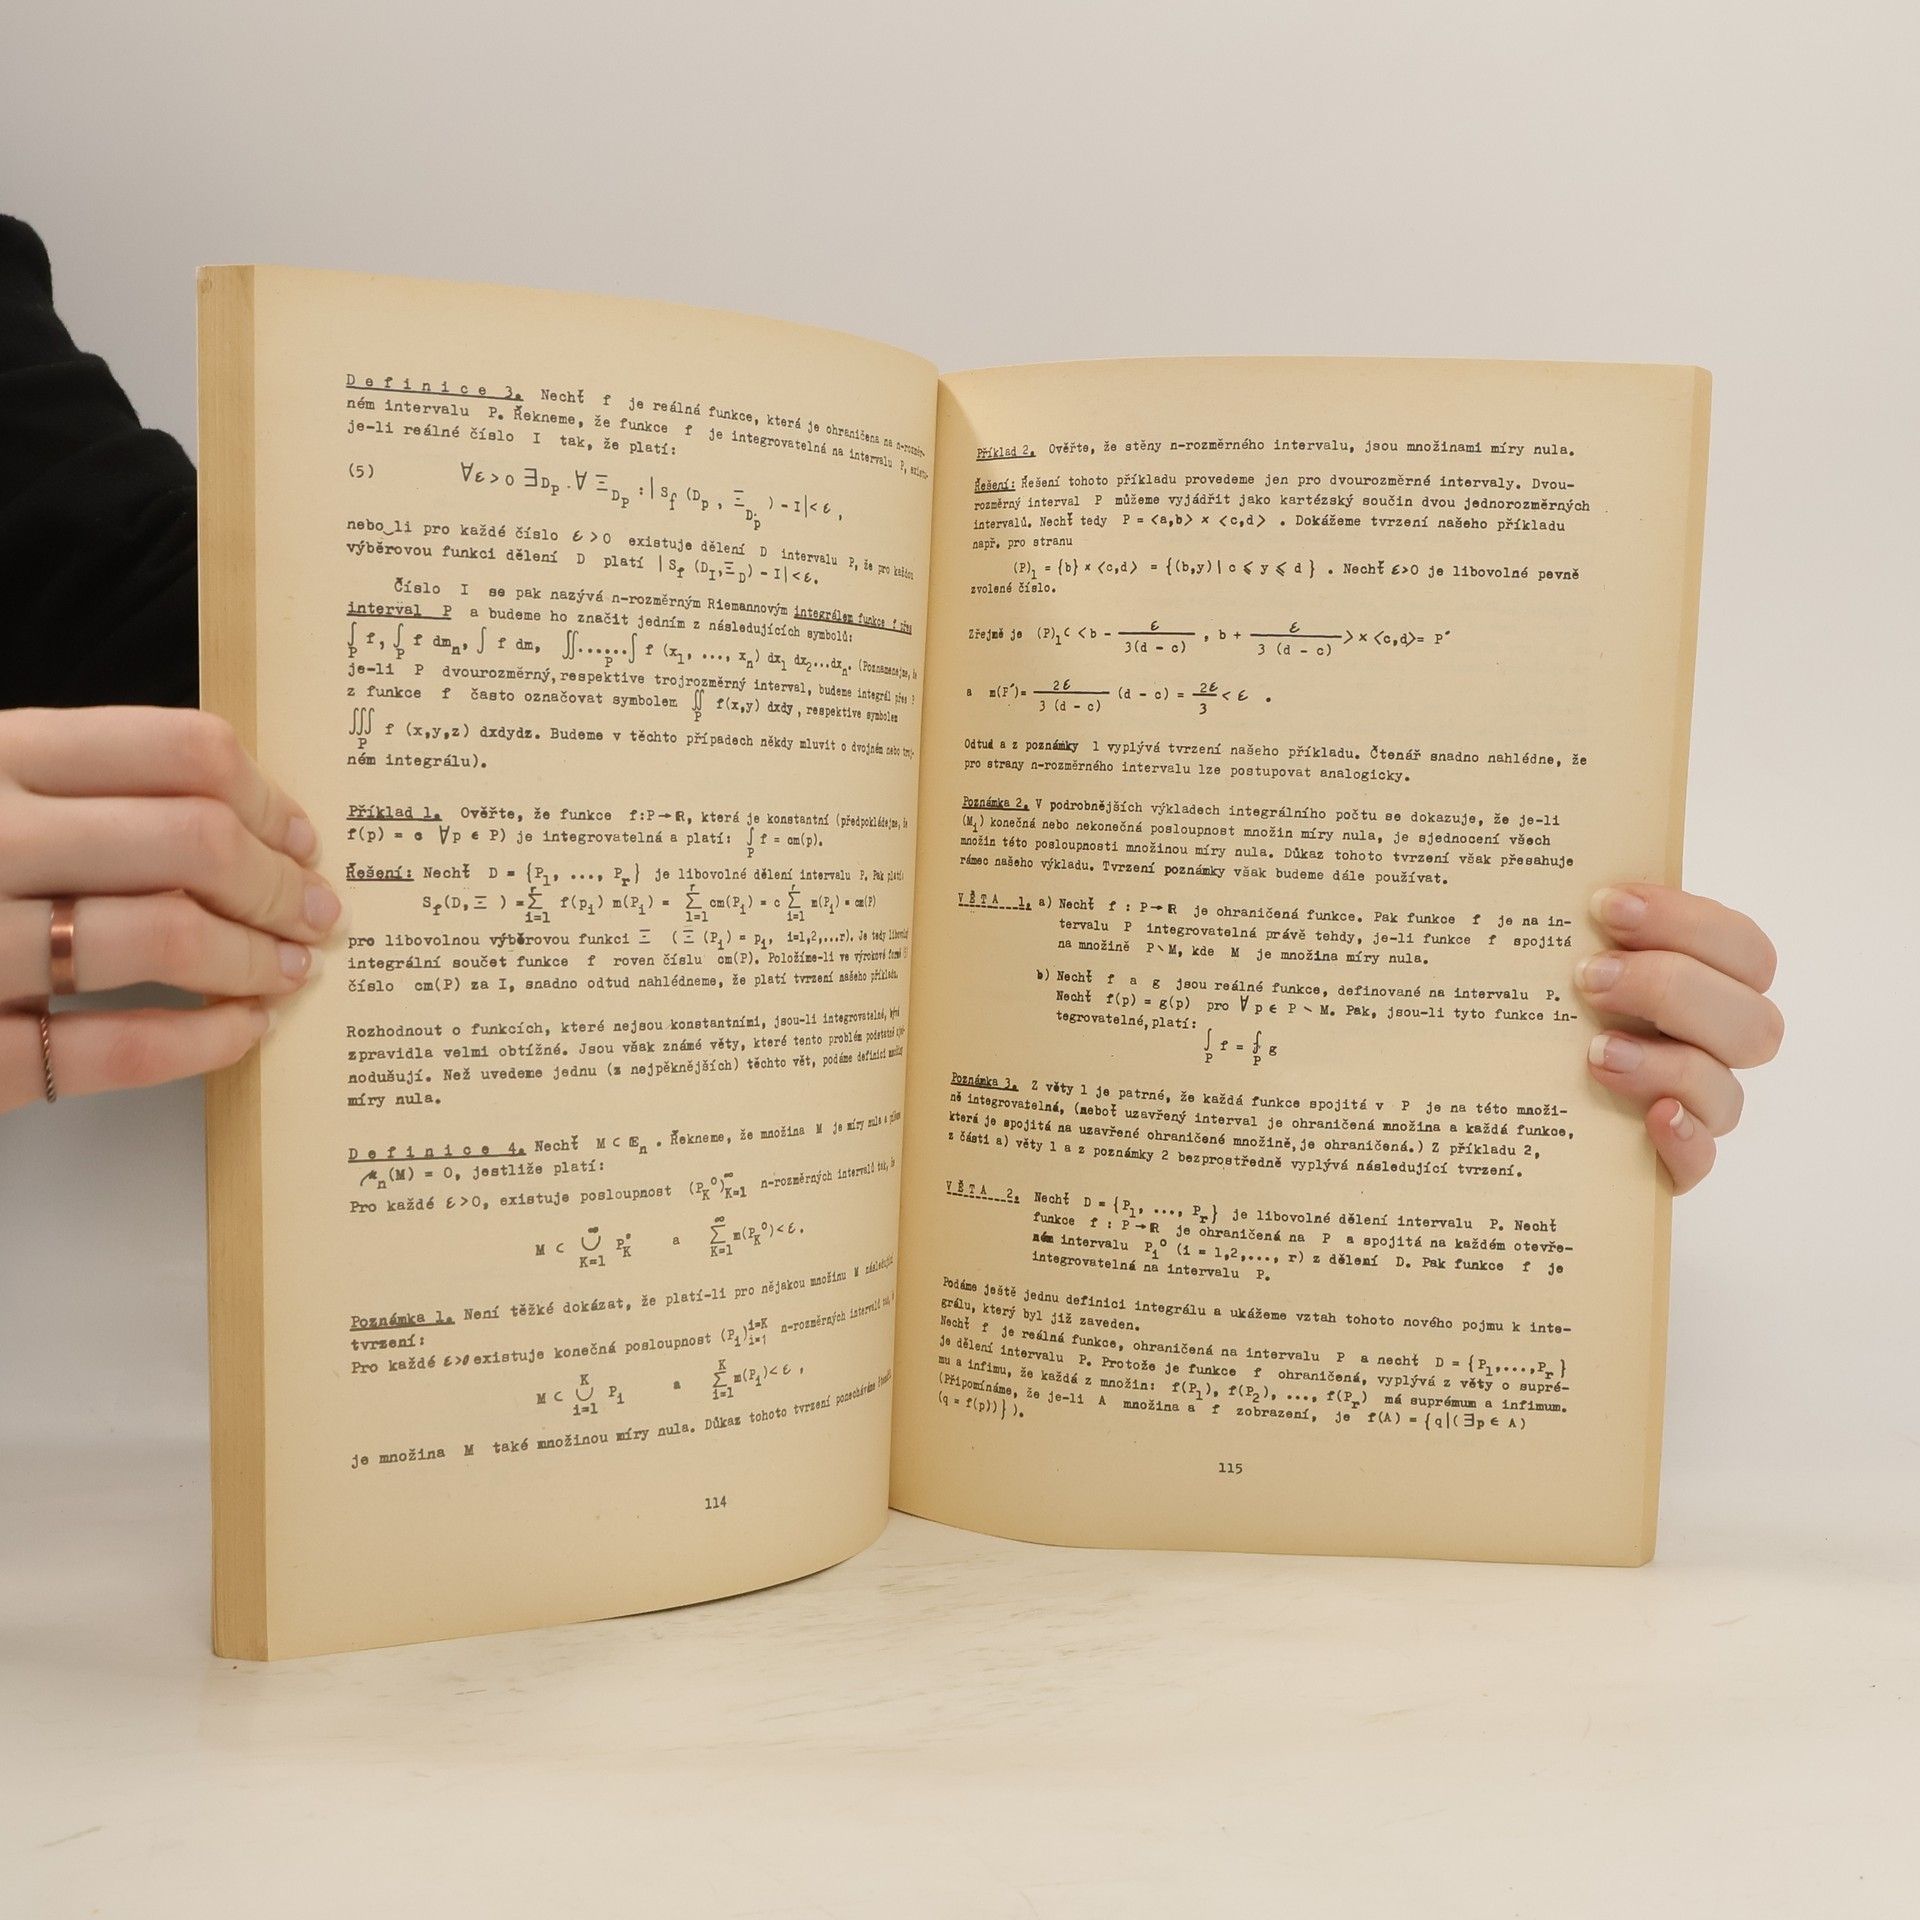 Definice 3. Nechť f je reálná funkce, která je ohraničena na n-rozměr-
ném intervalu P. Řekneme, že funkce f je integrovatelná na intervalu P, existu-
je-li reálné číslo I tak, že platí:
(5) ∀ε>0 ∃D_P . ∀ Ξ_{D_P} : |S_f (D_P , Ξ_{D_P}) - I| < ε ,
nebo_li pro každé číslo ε>0 existuje dělení D intervalu P, že pro každou
výběrovou funkci dělení D platí |S_f (D_I,Ξ_D) - I|<ε.
Číslo I se pak nazývá n-rozměrným Riemannovým integrálem funkce f přes
interval P a budeme ho značit jedním z následujících symbolů:
∫_P f, ∫_P f dm_n, ∫ f dm, ∬......∫_P f (x_1, ..., x_n) dx_1 dx_2...dx_n. (Poznamenejme, že
je-li P dvourozměrný, respektive trojrozměrný interval, budeme integrál přes P
z funkce f často označovat symbolem ∬_P f(x,y) dxdy, respektive symbolem
∭_P f (x,y,z) dxdydz. Budeme v těchto případech někdy mluvit o dvojném nebo troj-
ném integrálu).
Příklad 1. Ověřte, že funkce f:P→R, která je konstantní (předpokládejme, že
f(p) = c ∀p ∈ P) je integrovatelná a platí: ∫_P f = cm(p).
Řešení: Nechť D = {P_1, ..., P_r} je libovolné dělení intervalu P. Pak platí:
S_f(D,Ξ ) = ∑_{i=1}^r f(p_i) m(P_i) = ∑_{i=1}^r cm(P_i) = c ∑_{i=1}^r m(P_i) = cm(P)
pro libovolnou výběrovou funkci Ξ (Ξ (P_i) = p_i, i=1,2,...r). Je tedy libovolný
integrální součet funkce f roven číslu cm(P). Položíme-li ve výrokové formě (5)
číslo cm(P) za I, snadno odtud nahlédneme, že platí tvrzení našeho příkladu.
Rozhodnout o funkcích, které nejsou konstantními, jsou-li integrovatelné, bývá
zpravidla velmi obtížné. Jsou však známé věty, které tento problém podstatně zjed-
nodušují. Než uvedeme jednu (z nejpěknějších) těchto vět, podáme definici množiny
míry nula.
Definice 4. Nechť M ⊂ E_n . Řekneme, že množina M je míry nula a píšeme
m_n(M) = 0, jestliže platí:
Pro každé ε>0, existuje posloupnost (P_K^o)_{K=1}^∞ n-rozměrných intervalů tak, že
M ⊂ ∪_{K=1}^∞ P_K^o a ∑_{K=1}^∞ m(P_K^o)<ε.
Poznámka 1. Není těžké dokázat, že platí-li pro nějakou množinu M následující
tvrzení:
Pro každé ε>0 existuje konečná posloupnost (P_i)_{i=1}^{i=K} n-rozměrných intervalů tak, že
M ⊂ ∪_{i=1}^K P_i a ∑_{i=1}^K m(P_i)<ε ,
je množina M také množinou míry nula. Důkaz tohoto tvrzení ponecháváme čtenáři.
114
Příklad 2. Ověřte, že stěny n-rozměrného intervalu, jsou množinami míry nula.
Řešení: Řešení tohoto příkladu provedeme jen pro dvourozměrné intervaly. Dvou-
rozměrný interval P můžeme vyjádřit jako kartézský součin dvou jednorozměrných
intervalů. Nechť tedy P = <a,b> × <c,d> . Dokážeme tvrzení našeho příkladu
např. pro stranu
(P)_1 = {b} × <c,d> = {(b,y)| c ⩽ y ⩽ d } . Nechť ε>0 je libovolné pevně
zvolené číslo.
Zřejmě je (P)_1 ⊂ <b - ε/3(d - c) , b + ε/3 (d - c) > × <c,d>= P´
a m(P´)= 2ε/3 (d - c) (d - c) = 2ε/3 < ε .
Odtud a z poznámky 1 vyplývá tvrzení našeho příkladu. Čtenář snadno nahlédne, že
pro strany n-rozměrného intervalu lze postupovat analogicky.
Poznámka 2. V podrobnějších výkladech integrálního počtu se dokazuje, že je-li
(M_i) konečná nebo nekonečná posloupnost množin míry nula, je sjednocení všech
množin této posloupnosti množinou míry nula. Důkaz tohoto tvrzení však přesahuje
rámec našeho výkladu. Tvrzení poznámky však budeme dále používat.
VĚTA 1. a) Nechť f : P→R je ohraničená funkce. Pak funkce f je na in-
tervalu P integrovatelná právě tehdy, je-li funkce f spojitá
na množině P∖M, kde M je množina míry nula.
b) Nechť f a g jsou reálné funkce, definované na intervalu P.
Nechť f(p) = g(p) pro ∀ p ∈ P ∖ M. Pak, jsou-li tyto funkce in-
tegrovatelné, platí:
∫_P f = ∫_P g
Poznámka 3. Z věty 1 je patrné, že každá funkce spojitá v P je na této množi-
ně integrovatelná, (neboť uzavřený interval je ohraničená množina a každá funkce,
která je spojitá na uzavřené ohraničené množině, je ohraničená.) Z příkladu 2,
z části a) věty 1 a z poznámky 2 bezprostředně vyplývá následující tvrzení.
VĚTA 2. Nechť D = {P_1, ..., P_r} je libovolné dělení intervalu P. Nechť
funkce f : P→R je ohraničená na P a spojitá na každém otevře-
ném intervalu P_i^o (i = 1,2,..., r) z dělení D. Pak funkce f je
integrovatelná na intervalu P.
Podáme ještě jednu definici integrálu a ukážeme vztah tohoto nového pojmu k inte-
grálu, který byl již zaveden.
Nechť f je reálná funkce, ohraničená na intervalu P a nechť D = {P_1,...,P_r}
je dělení intervalu P. Protože je funkce f ohraničená, vyplývá z věty o supré-
mu a infimu, že každá z množin: f(P_1), f(P_2), ..., f(P_r) má suprémum a infimum.
(Připomínáme, že je-li A množina a f zobrazení, je f(A) = {q|(∃p ∈ A)
(q = f(p))} ).
115